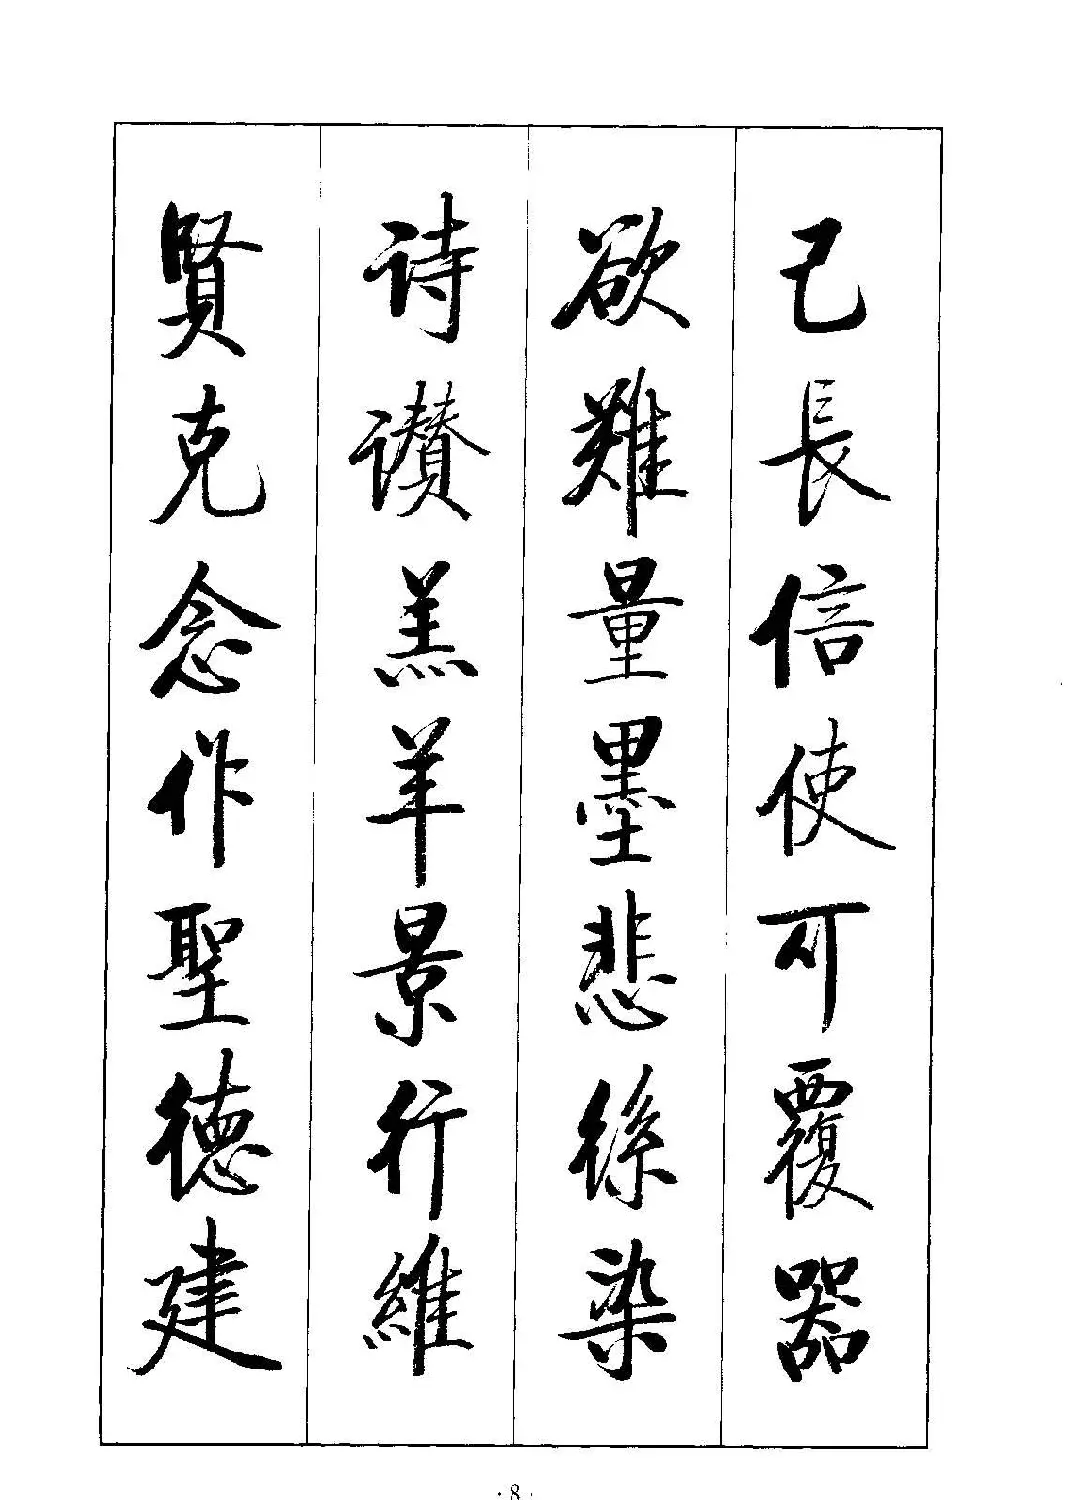 己長信使可覆器
欲難量墨悲絲染
诗讃羔羊景行維
賢克念作聖德建
· 8 ·